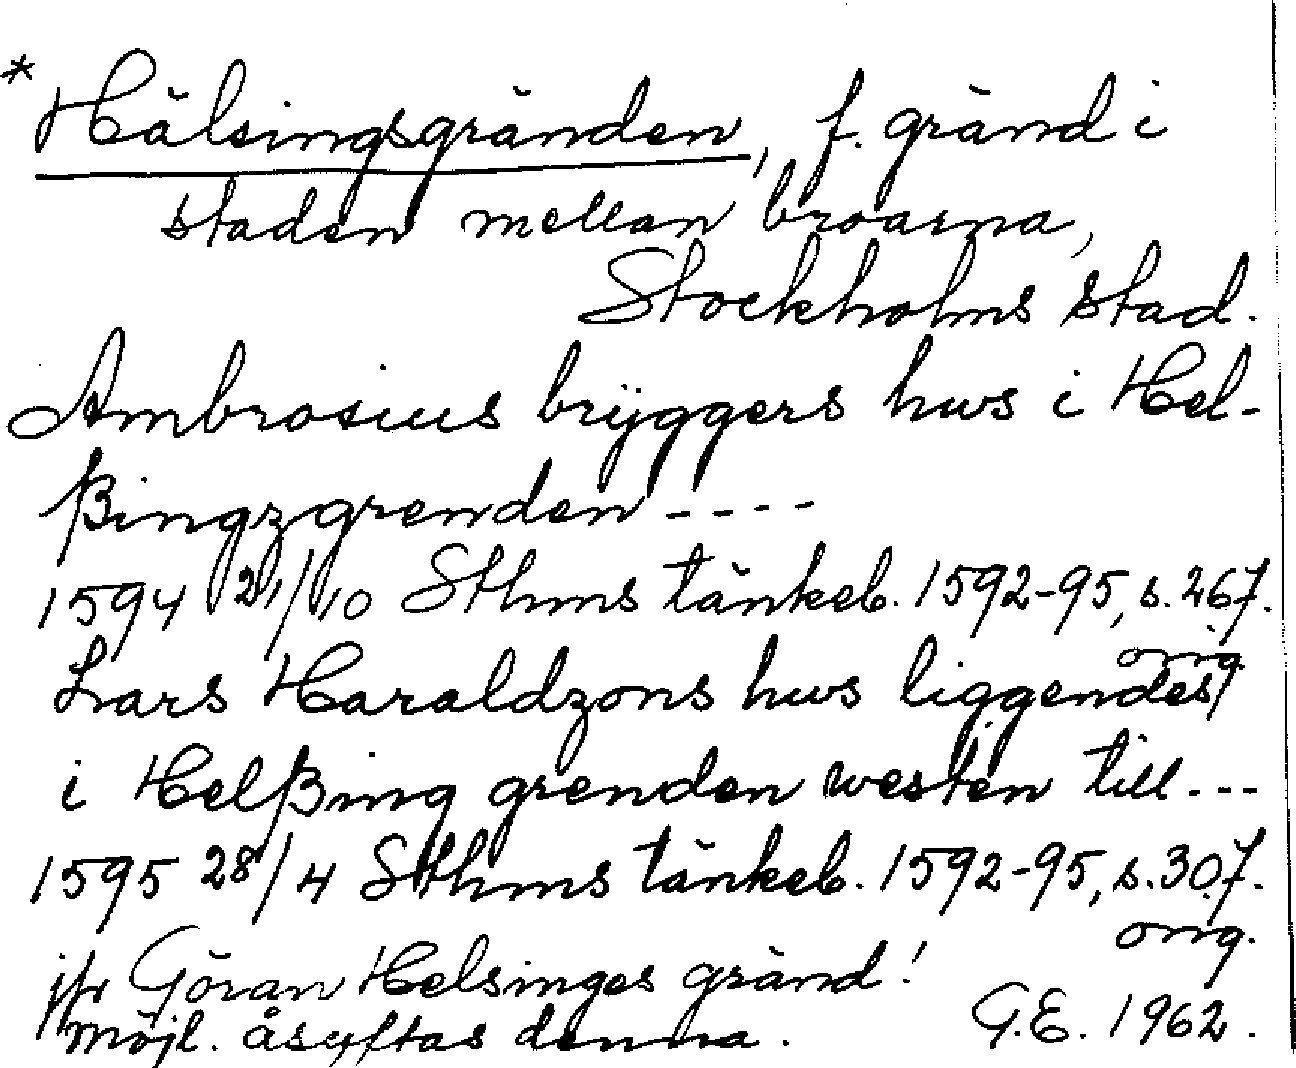 * Hälsingsgränden, f. gränd i
staden mellan broarna,
Stockholms stad.
Ambrosius bryggers hws i Hel-
ßingzgrenden ----
1594 21/10 Sthms tänkeb. 1592-95, s. 267.
orig.
Lars Haraldzons hws liggendes
i Helßing grenden westen till ---
1595 28/4 Sthms tänkeb. 1592-95, s. 307.
orig.
jfr Göran Helsinges gränd!
Möjl. åsyftas denna. G.E. 1962.